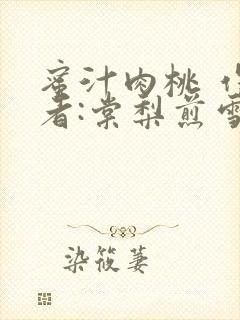 蜜汁肉桃 作
者:棠梨煎雪
染筱萋